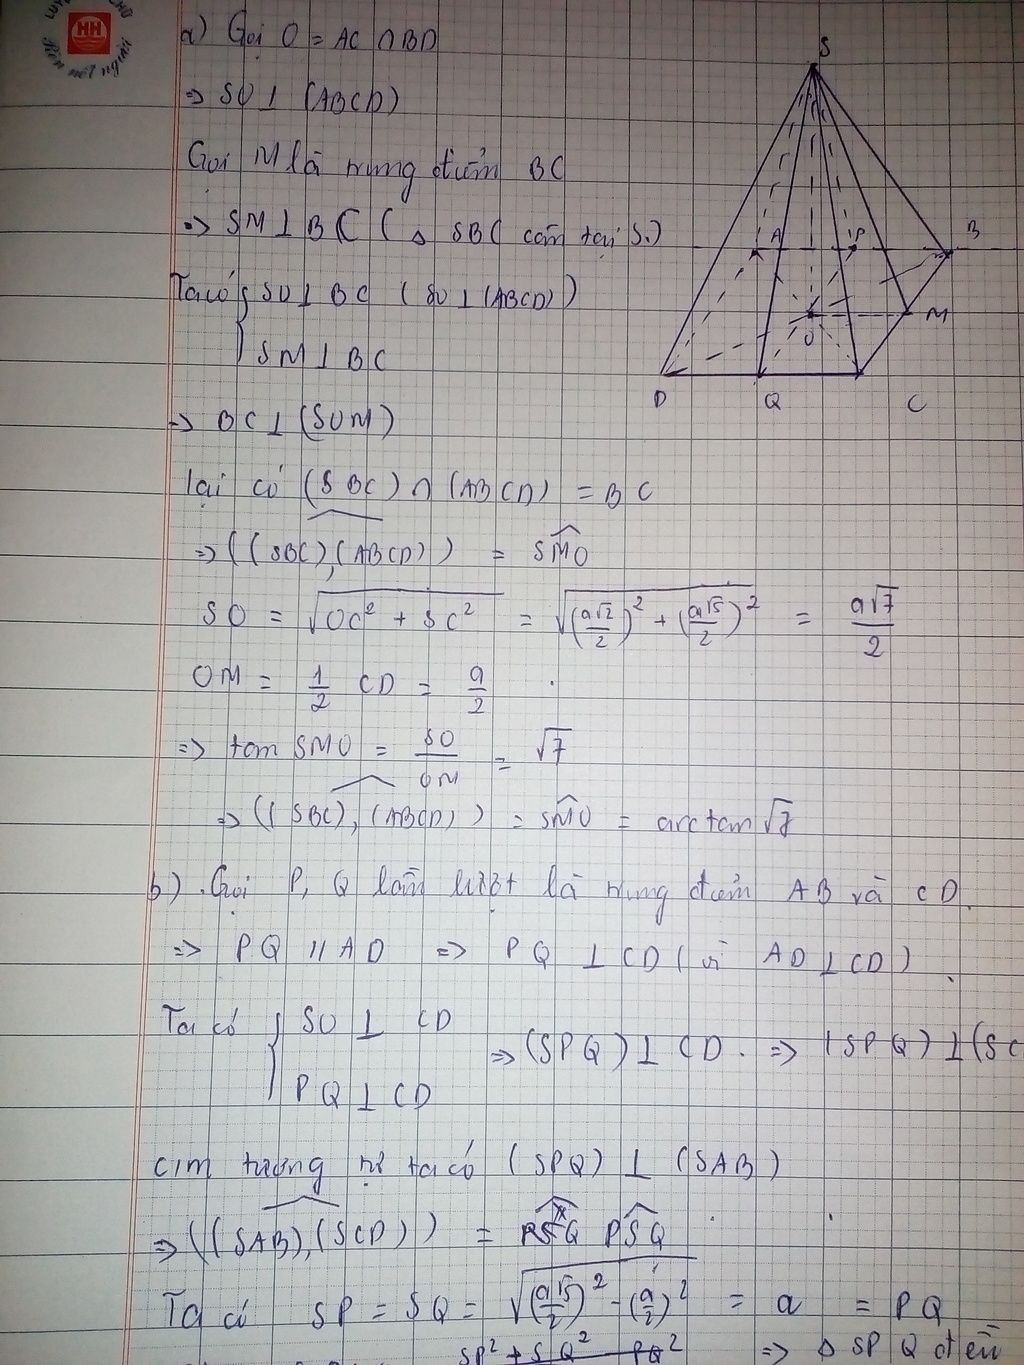 a) Gọi O = AC ∩ BD
=> SO ⊥ (ABCD)
Gọi M là trung điểm BC
=> SM ⊥ BC ( △ SBC cân tại S.)
Ta có { SO ⊥ BC ( SO ⊥ (ABCD))
SM ⊥ BC
=> BC ⊥ (SOM)
lại có (SBC) ∩ (ABCD) = BC
=> ((SBC),(ABCD)) = SMO
SO = √(OC² + SC²) = √((a√2/2)² + (a√5/2)²) = a√7/2
OM = 1/2 CD = a/2
=> tan SMO = SO/OM = √7
=> ((SBC), (ABCD)) = SMO = arctan √7
b) . Gọi P, Q lần lượt là trung điểm AB và CD.
=> PQ // AD => PQ ⊥ CD ( vì AD ⊥ CD)
Ta có { SO ⊥ CD
PQ ⊥ CD
=> (SPQ) ⊥ CD . => (SPQ) ⊥ (SC
CIM tương tự ta có (SPQ) ⊥ (SAB)
=> ((SAB),(SCD)) = PSQ
Ta có SP = SQ = √((a√5/2)² - (a/2)²) = a = PQ
SP² + SQ² PQ² => △ SPQ đều
S
A P B
O M
D Q C
HH